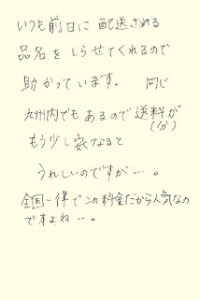 いつも前日に配送される
品名をしらせてくれるので
助かっています。 同じ
九州内でもあるので送料が
(分)
もう少し安くなると
うれしいのですが…。
全国一律でこの料金だから人気なの
ですよね…。